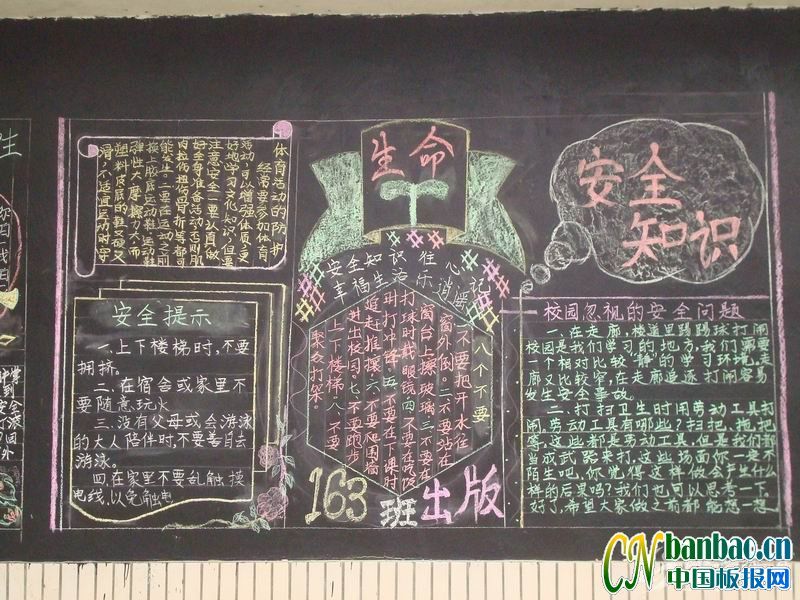 体育活动的防护
经常要参加体育
活动,可以增强体质,更
好地学习文化知识,但要
注意安全一要认真做
好全身准备活动,否则肌
内拉伤扭伤骨折等都可
能发生。二要在运动之前
换上胶底运动鞋,运动鞋
弹性大,摩擦力大,而
塑料皮底的鞋硬又
滑,不适宜运动时穿
安全提示
一、上下楼梯时,不要
拥挤。
二、在宿舍或家里不
要随意玩火
三、没有父母或会游泳
的大人陪伴时,不要善自去
游泳。
四、在家里不要乱触摸
电线,以免触电
生命
安全知识 在心
幸福生活 乐消遥
八个不要
一、不要把开水在
窗外倒。二、不要站在
窗台上擦玻璃三、不要在
打球时戴眼镜四、不要在吃饭
时打冲锋五、不要在下课时
追赶推攘六、不要爬围墙
进出校园。七、不要跑步
上下楼梯。八、不要
聚众打架。
163班出版
安全
知识
校园忽视的安全问题
一、在走廊,楼道里踢踢球打闹
校园是我们学习的地方,我们需要
一个相对比较"静"的学习环境,走
廊又比较窄,在走廊追逐打闹容易
发生安全事故。
二、打扫卫生时用劳动工具打
闹,劳动工具有哪些?扫把、拖把
等,这些都是劳动工具,但是我们都
当成武器来打,这些场面你一定不
陌生吧,你觉得这样做会产生什么
样的后果吗?我们也可以思考一下
好了,希望大家做之前都能想一想
CN banbao.cn
中国板报网